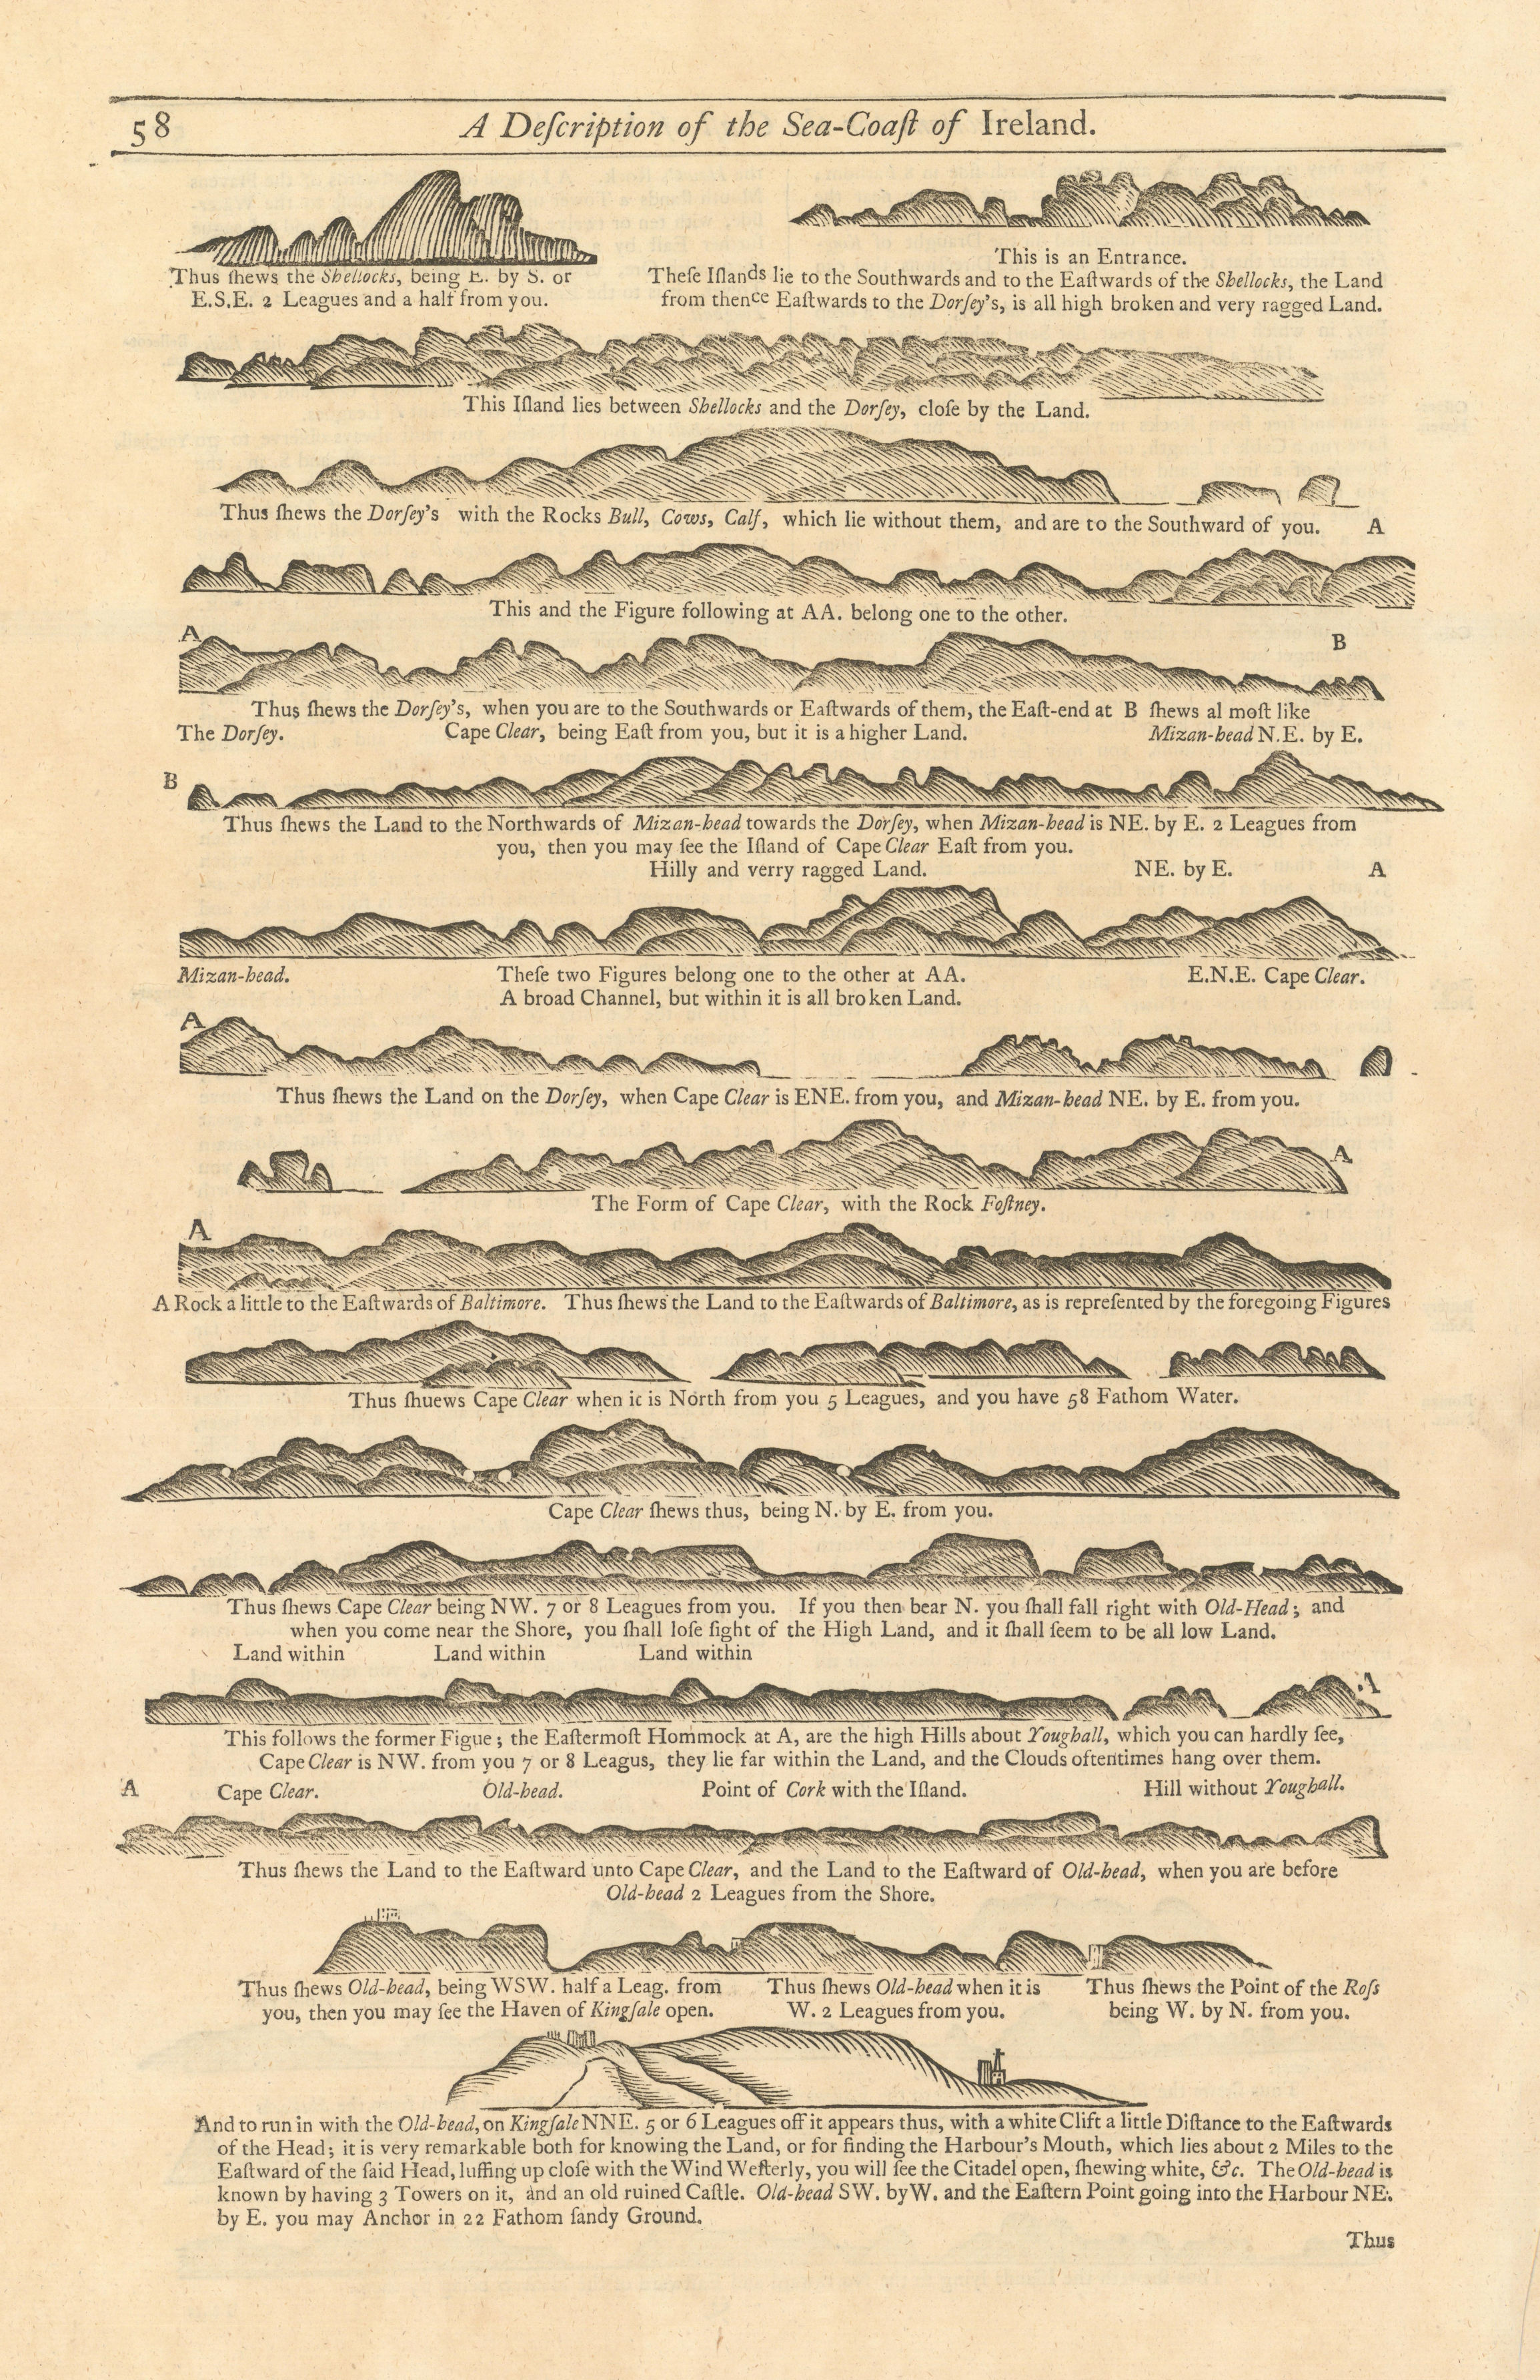 58
A Deſcription of the Sea-Coaſt of Ireland.
Thus ſhews the Shellocks, being E. by S. or
E.S.E. 2 Leagues and a half from you.
This is an Entrance.
Theſe Iſlands lie to the Southwards and to the Eaſtwards of the Shellocks, the Land
from thence Eaſtwards to the Dorſey's, is all high broken and very ragged Land.
This Iſland lies between Shellocks and the Dorſey, cloſe by the Land.
Thus ſhews the Dorſey's with the Rocks Bull, Cows, Calf, which lie without them, and are to the Southward of you. A
This and the Figure following at AA. belong one to the other.
A B
Thus ſhews the Dorſey's, when you are to the Southwards or Eaſtwards of them, the Eaſt-end at B ſhews al moſt like
The Dorſey. Cape Clear, being Eaſt from you, but it is a higher Land. Mizan-head N.E. by E.
B
Thus ſhews the Land to the Northwards of Mizan-head towards the Dorſey, when Mizan-head is NE. by E. 2 Leagues from
you, then you may ſee the Iſland of Cape Clear Eaſt from you.
Hilly and verry ragged Land. NE. by E. A
Mizan-head. Theſe two Figures belong one to the other at AA. E.N.E. Cape Clear.
A broad Channel, but within it is all broken Land.
A
Thus ſhews the Land on the Dorſey, when Cape Clear is ENE. from you, and Mizan-head NE. by E. from you.
A
The Form of Cape Clear, with the Rock Foſtney.
A
A Rock a little to the Eaſtwards of Baltimore. Thus ſhews the Land to the Eaſtwards of Baltimore, as is repreſented by the foregoing Figures
Thus ſhuews Cape Clear when it is North from you 5 Leagues, and you have 58 Fathom Water.
Cape Clear ſhews thus, being N. by E. from you.
Thus ſhews Cape Clear being NW. 7 or 8 Leagues from you. If you then bear N. you ſhall fall right with Old-Head; and
when you come near the Shore, you ſhall loſe ſight of the High Land, and it ſhall ſeem to be all low Land.
Land within Land within Land within
A
This follows the former Figue; the Eaſtermoſt Hommock at A, are the high Hills about Youghall, which you can hardly ſee,
Cape Clear is NW. from you 7 or 8 Leagus, they lie far within the Land, and the Clouds oftentimes hang over them.
A Cape Clear. Old-head. Point of Cork with the Iſland. Hill without Youghall.
Thus ſhews the Land to the Eaſtward unto Cape Clear, and the Land to the Eaſtward of Old-head, when you are before
Old-head 2 Leagues from the Shore.
Thus ſhews Old-head, being WSW. half a Leag. from
you, then you may ſee the Haven of Kingſale open.
Thus ſhews Old-head when it is
W. 2 Leagues from you.
Thus ſhews the Point of the Roſs
being W. by N. from you.
And to run in with the Old-head, on Kingſale NNE. 5 or 6 Leagues off it appears thus, with a white Clift a little Diſtance to the Eaſtwards
of the Head; it is very remarkable both for knowing the Land, or for finding the Harbour's Mouth, which lies about 2 Miles to the
Eaſtward of the ſaid Head, luffing up cloſe with the Wind Weſterly, you will ſee the Citadel open, ſhewing white, &c. The Old-head is
known by having 3 Towers on it, and an old ruined Caſtle. Old-head SW. by W. and the Eaſtern Point going into the Harbour NE.
by E. you may Anchor in 22 Fathom ſandy Ground.
Thus